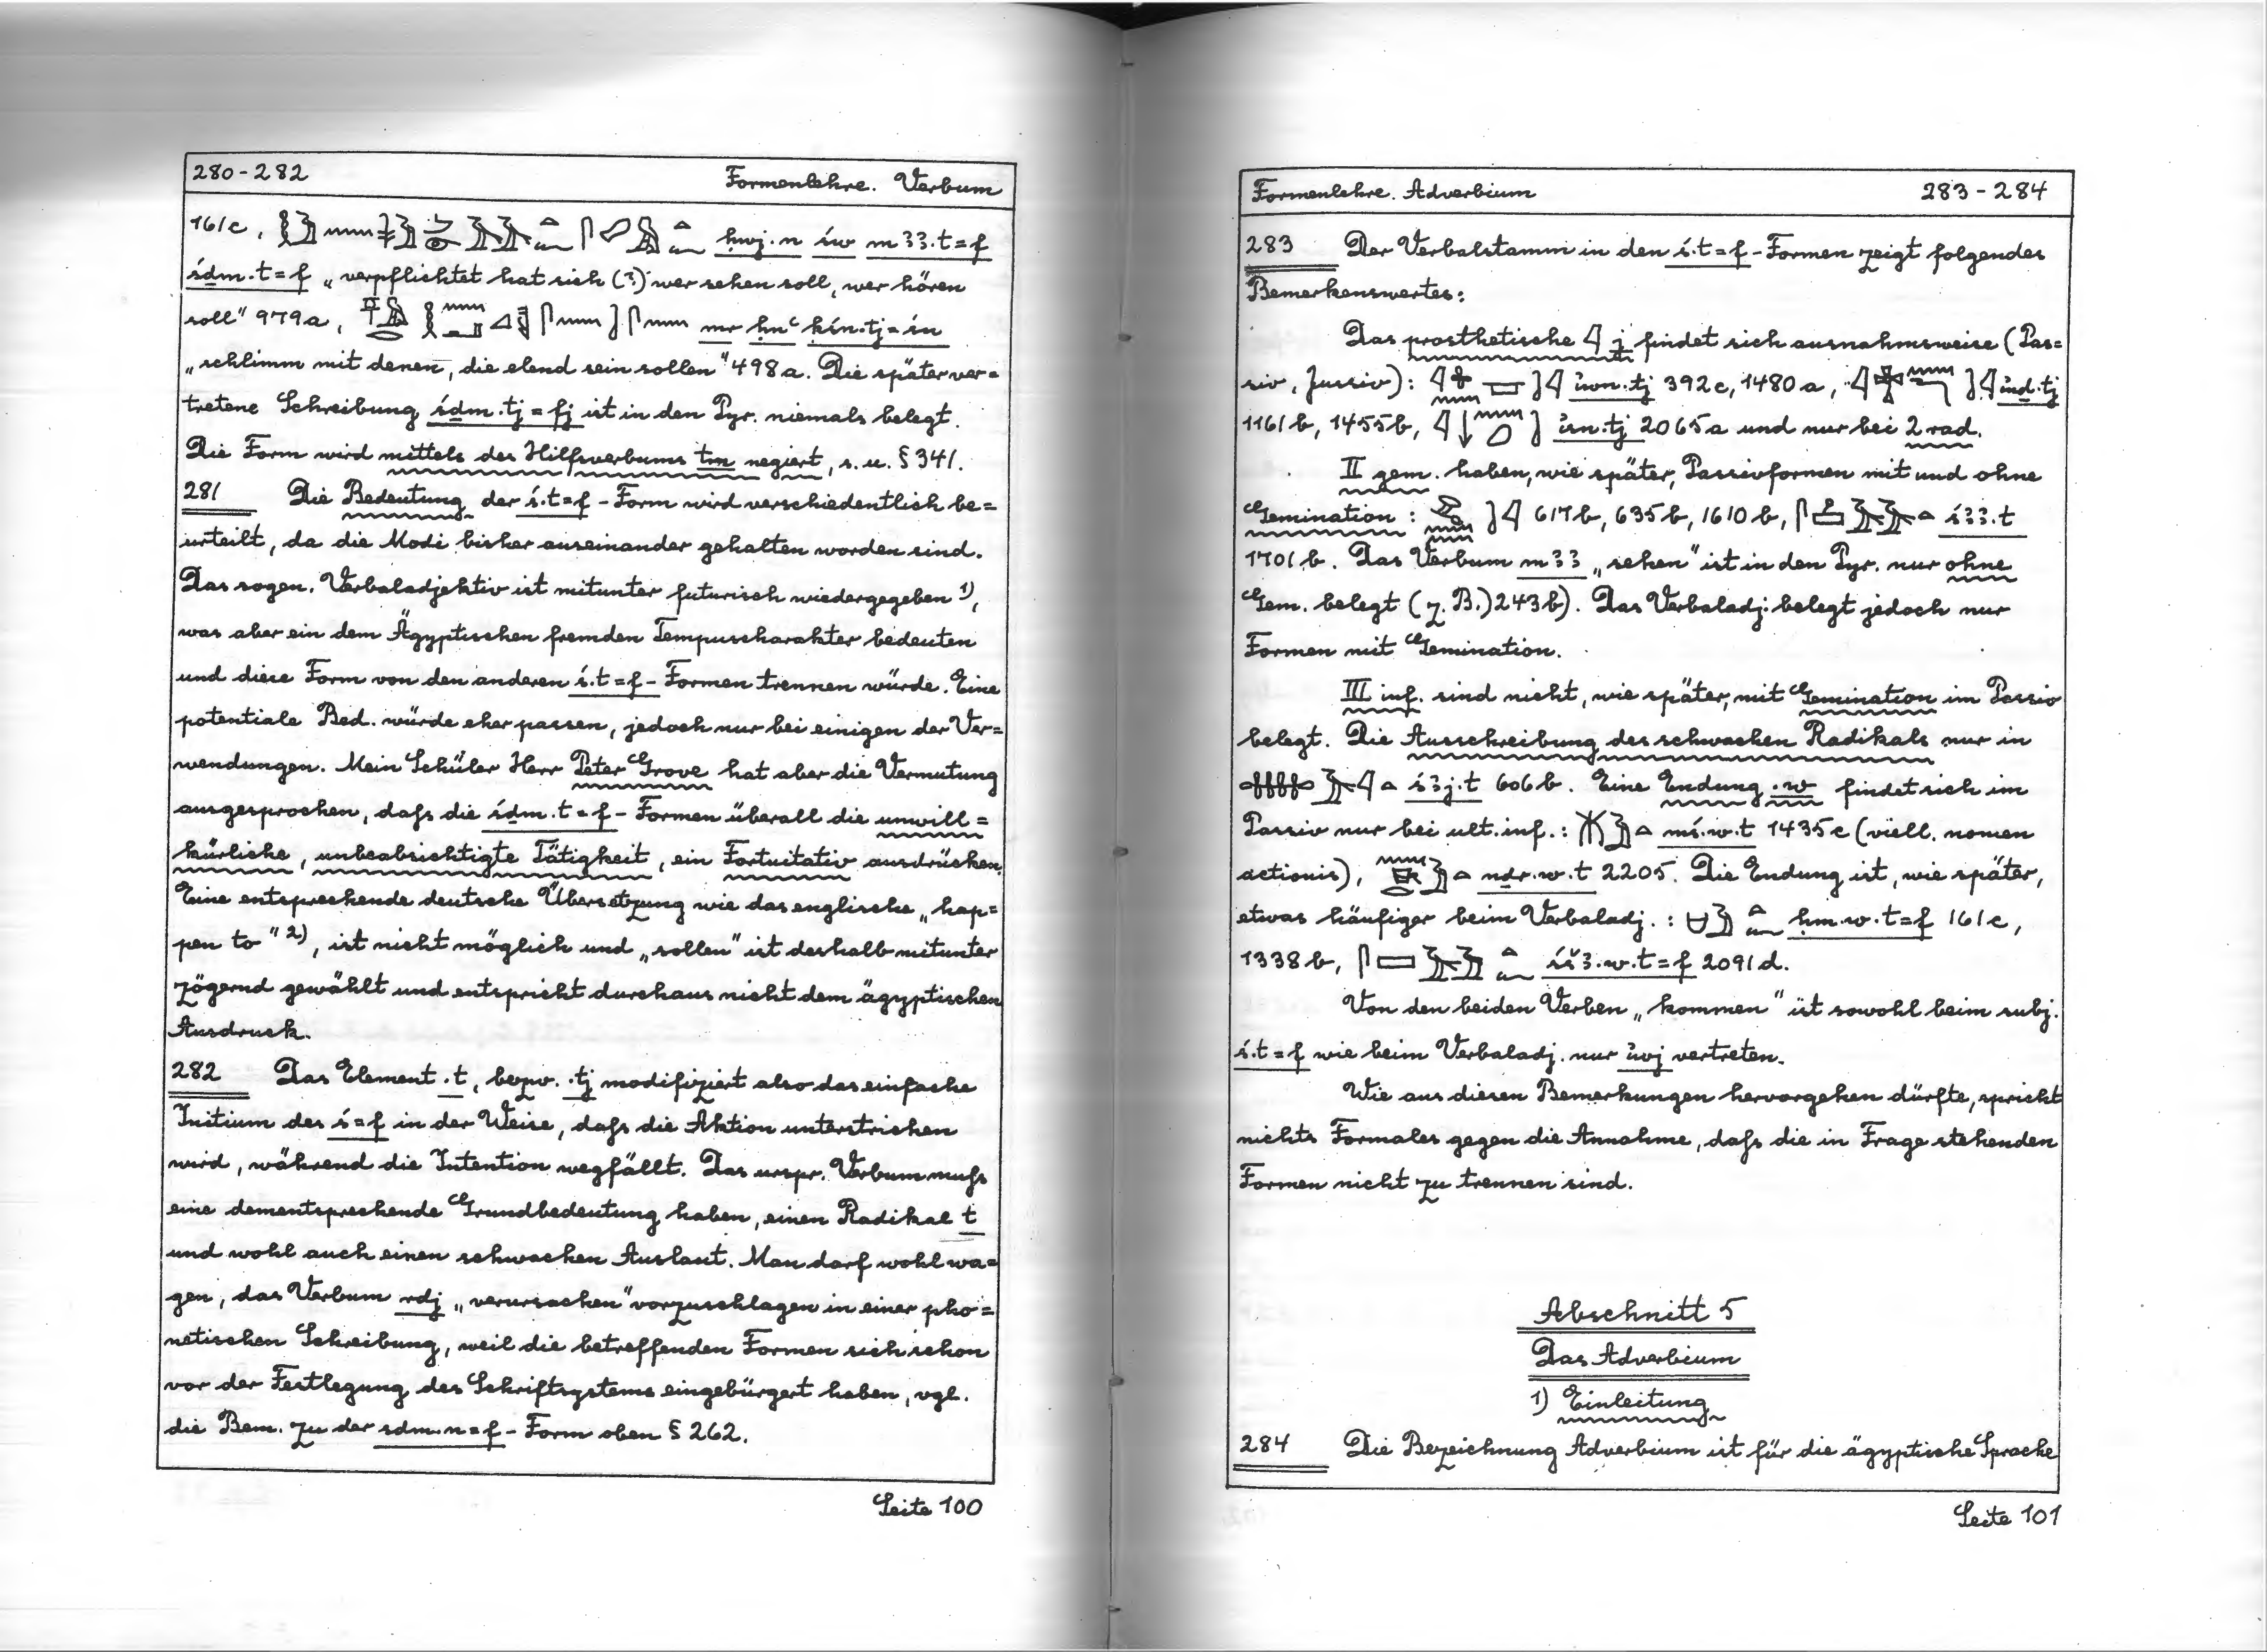 280-282 Formenlehre. Verbum
161c, ḥwj.n św mꜣꜣ.t=f
śḏm.t=f „verpflichtet hat sich (?) wer sehen soll, wer hören
soll" 979a, mr ḥnꜥ ḳśn.tj=śn
„schlimm mit denen, die elend sein sollen" 498a. Die später ver=
tretene Schreibung śḏm.tj=fj ist in den Pyr. niemals belegt.
Die Form wird mittels des Hilfsverbums tm negiert, s.u. § 341.
281 Die Bedeutung der ś.t=f-Form wird verschiedentlich be=
urteilt, da die Modi bisher auseinander gehalten worden sind.
Das sogen. Verbaladjektiv ist mitunter futurisch wiedergegeben 1),
was aber ein dem Ägyptischen fremden Tempuscharakter bedeuten
und diese Form von den anderen ś.t=f-Formen trennen würde. Eine
potentiale Bed. würde eher passen, jedoch nur bei einigen der Ver=
wendungen. Mein Schüler Herr Peter Grove hat aber die Vermutung
ausgesprochen, daſs die śḏm.t=f-Formen überall die unwill=
kürliche, unbeabsichtigte Tätigkeit, ein Fortuitativ ausdrücken.
Eine entsprechende deutsche Übersetzung wie das englische „hap=
pen to" 2), ist nicht möglich und „sollen" ist deshalb mitunter
zögernd gewählt und entspricht durchaus nicht dem ägyptischen
Ausdruck.
282 Das Element .t, bezw. .tj modifiziert also das einfache
Initium des ś=f in der Weise, daſs die Aktion unterstrichen
wird, während die Intention wegfällt. Das urspr. Verbum muſs
eine dementsprechende Grundbedeutung haben, einen Radikal t
und wohl auch einen schwachen Auslaut. Man darf wohl wa=
gen, das Verbum rdj „verursachen" vorzuschlagen in einer pho=
netischen Schreibung, weil die betreffenden Formen sich schon
vor der Festlegung des Schriftsystems eingebürgert haben, vgl.
die Bem. zu der sdm.n=f-Form oben § 262.
Seite 100
Formenlehre. Adverbium 283-284
283 Der Verbalstamm in den ś.t=f-Formen zeigt folgendes
Bemerkenswertes:
Das prosthetische j findet sich ausnahmsweise (Pas=
siv, Jussiv): i̓wn.tj 392c, 1480a, i̓nḏ.tj
1161b, 1455b, i̓sn.tj 2065a und nur bei 2 rad.
II gem. haben, wie später, Passivformen mit und ohne
Gemination: 617b, 635b, 1610b, śꜣꜣ.t
1701b. Das Verbum mꜣꜣ „sehen" ist in den Pyr. nur ohne
Gem. belegt (z.B.) 243b). Das Verbaladj. belegt jedoch nur
Formen mit Gemination.
III inf. sind nicht, wie später, mit Gemination im Passiv
belegt. Die Ausschreibung des schwachen Radikals nur in
śꜣj.t 606b. Eine Endung .w findet sich im
Passiv nur bei ult. inf.: mś.w.t 1435c (viell. nomen
actionis), nḏr.w.t 2205. Die Endung ist, wie später,
etwas häufiger beim Verbaladj.: ḥm.w.t=f 161c,
1338b, śšꜣ.w.t=f 2091d.
Von den beiden Verben „kommen" ist sowohl beim subj.
ś.t=f wie beim Verbaladj. nur i̓wj vertreten.
Wie aus diesen Bemerkungen hervorgehen dürfte, spricht
nichts Formales gegen die Annahme, daſs die in Frage stehenden
Formen nicht zu trennen sind.
Abschnitt 5
Das Adverbium
1) Einleitung
284 Die Bezeichnung Adverbium ist für die ägyptische Sprache
Seite 101